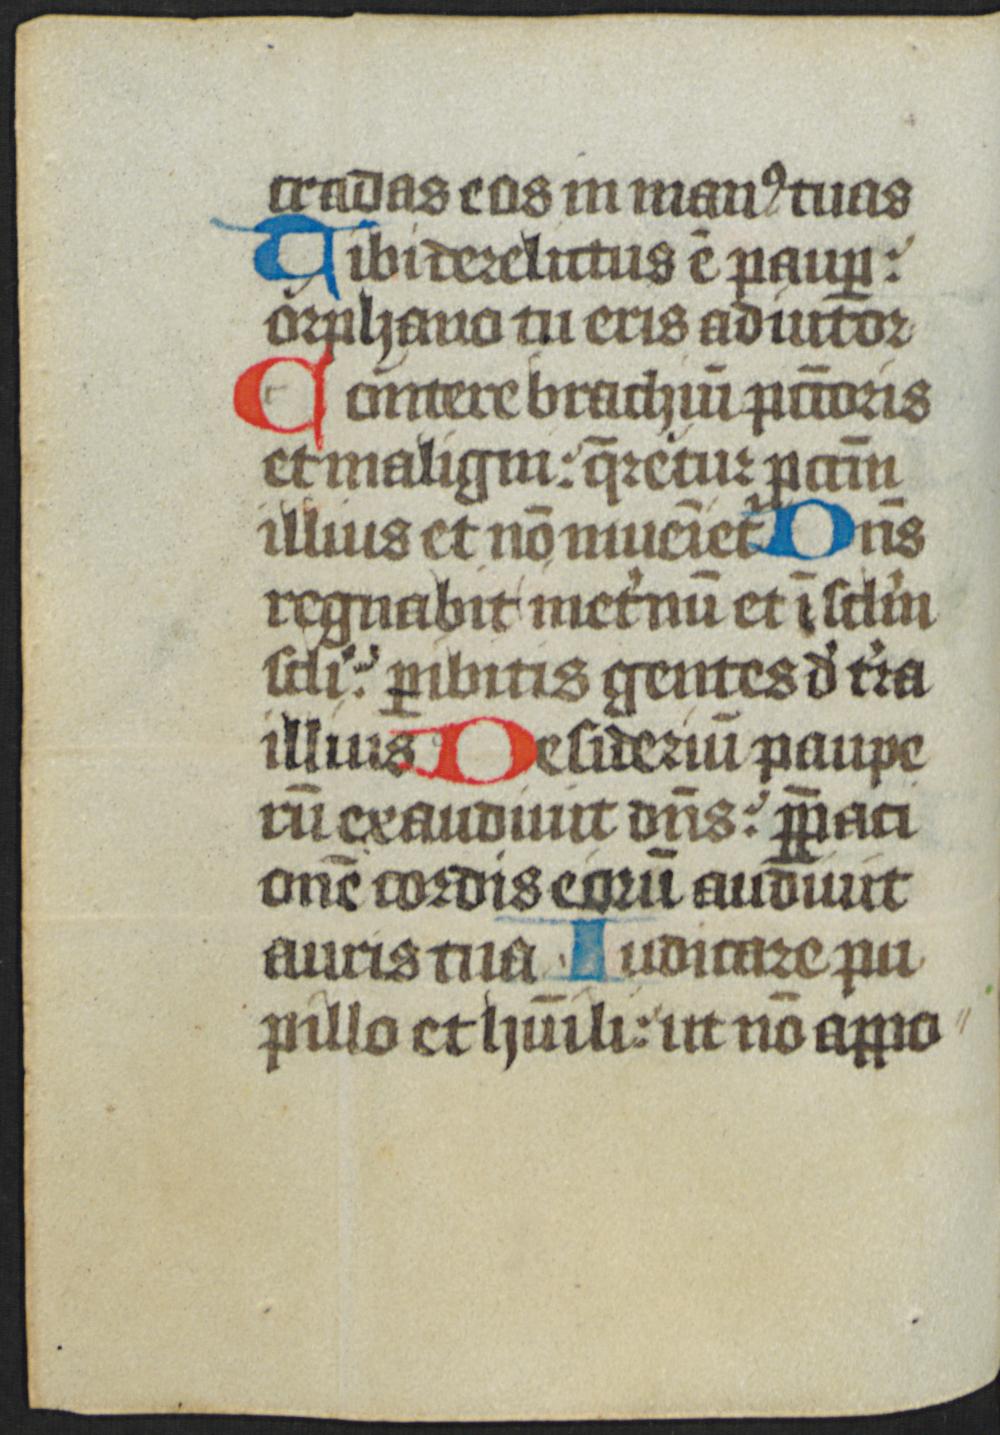 tradas eos in manꝰ tuas
Tibi derelictus ē paup̲:
orphano tu eris adiutor
Contere brachiū pctōris
et maligni: q̄retur pctm̄
illius et nō inueniet᷑ Dn̄s
regnabit in et͛nū et ī sclm̄
scli: ꝑibitis gentes d͛ tr͛a
illius Desideriū paupe
rū exaudiuit dn̄s: p̄paci
onē cordis eorū audiuit
auris tua Iudicare pu
pillo et hūili: ut nō appo〃